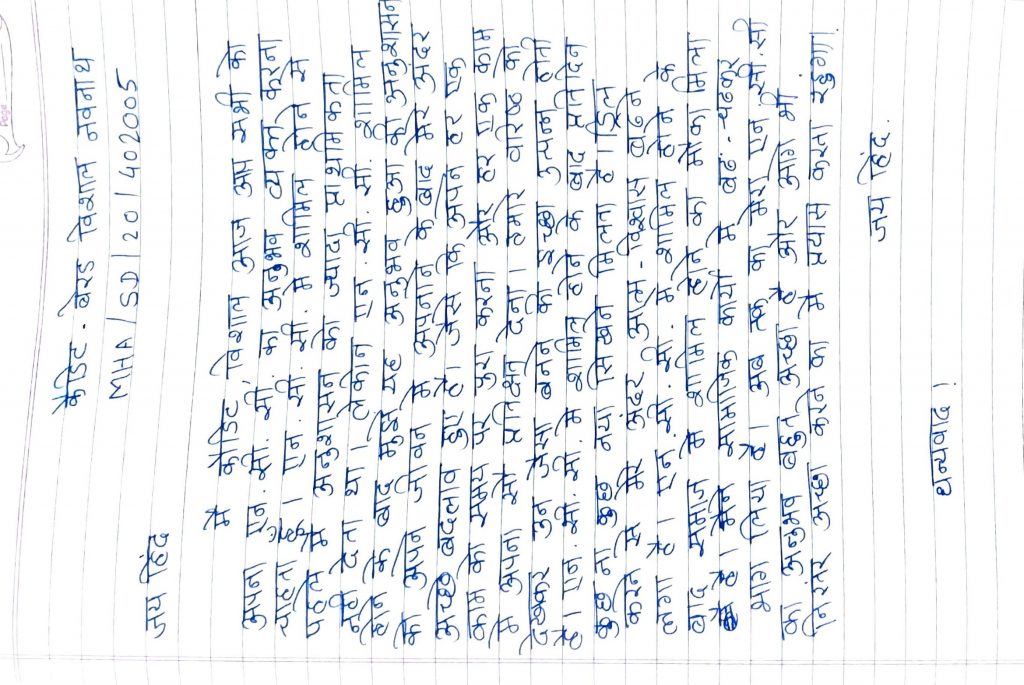 Page
कॅडेट. बेरड विशाल नवनाथ
MHA/SD/20/402005
जय हिंद
मैं कॅडेट विशाल आज आप सभी को
अपना एन. सी. सी. का अनुभव व्यक्त करना
चाहता हूँ। एन. सी. सी. में शामिल होने से
पहले मैं अनुशासन को ज्यादा प्राथमिकता
नही देता था। लेकीन एन. सी. सी. शामिल
होने के बाद मुझे यह अनुभव हुआ की अनुशासन
को अपने जीवन में अपनाने के बाद मेरे अंदर
अच्छे बदलाव हुए है। जैसे कि अपने हर एक
काम को समय पर पुरा करना और हर एक काम
में अपना सौ प्रतिशत देना। हमारे वरिष्ठ को
देखकर उन जैसा बनने की इच्छा उत्पन्न होती
है। एन. सी. सी. में शामिल होने के बाद प्रतिदिन
कुछ ना कुछ नया सिखने मिलता है। ड्रिल
करने से मेरे अंदर आत्म-विश्वास बढ़ने
लगा है। एन. सी. सी. में शामिल होने के
बाद समाज में शामिल होने का मौका मिला
है। मैने सामाजिक कार्यो में बढ-चढकर
भाग लिया है। अब तक का मेरा एन. सी. सी
का अनुभव बहुत अच्छा है और आगे भी
निरंतर अच्छा करने का मैं प्रयास करता रहुंगा।
जय हिंद.
धन्यवाद!